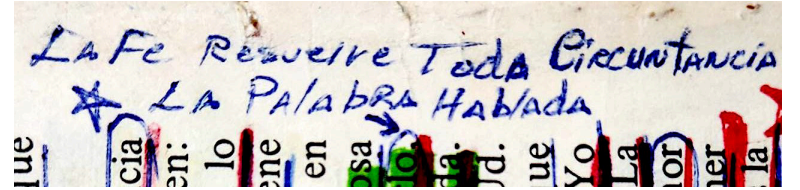 La Fe Resuelve Toda Circuntancia
☆ La Palabra Hablada
que
cia
en:
lo
ene
en
osa
do.
da.
Ud.
que
Yo
La
nor
er
la